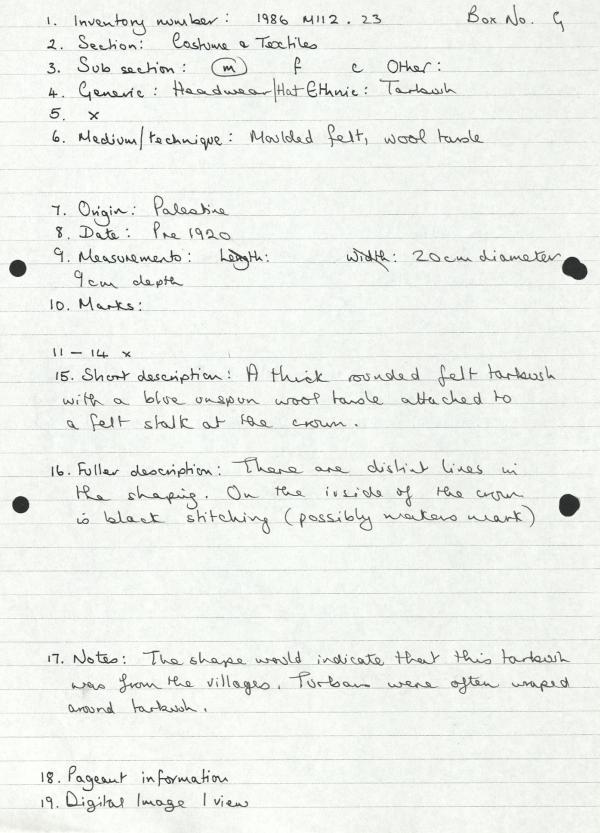 1. Inventory number: 1986 M112.23 Box No. G
2. Section: Costume & Textiles
3. Sub section: m f c Other:
4. Generic: Headwear/Hat Ethnic: Tarbush
5. x
6. Medium/technique: Moulded felt, wool tassle
7. Origin: Palestine
8. Date: Pre 1920
9. Measurements: Length: width: 20cm diameter
9cm depth
10. Marks:
11 - 14 x
15. Short description: A thick rounded felt tarbush
with a blue unspun wool tassle attached to
a felt stalk at the crown.
16. Fuller description: There are distint lines in
the shaping. On the inside of the crown
is black stitching (possibly makers mark)
17. Notes: The shape would indicate that this tarbush
was from the villages. Turbans were often wraped
around tarbush.
18. Pageant information
19. Digital Image 1 view